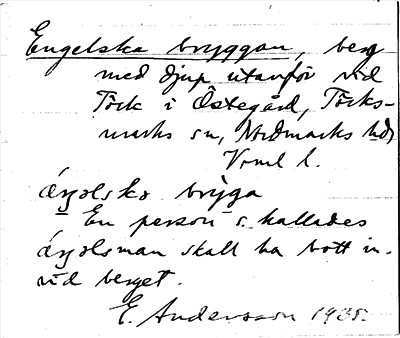 Engelska bryggan, berg
med djup utanför vid
Töck i Östegård, Töcks-
marks sn, Nordmarks hd,
Vrml l.
æŋəlskə bryga
En person s. kallades
æŋəlsman skall ha bott in-
vid berget.
E. Andersson 1935.